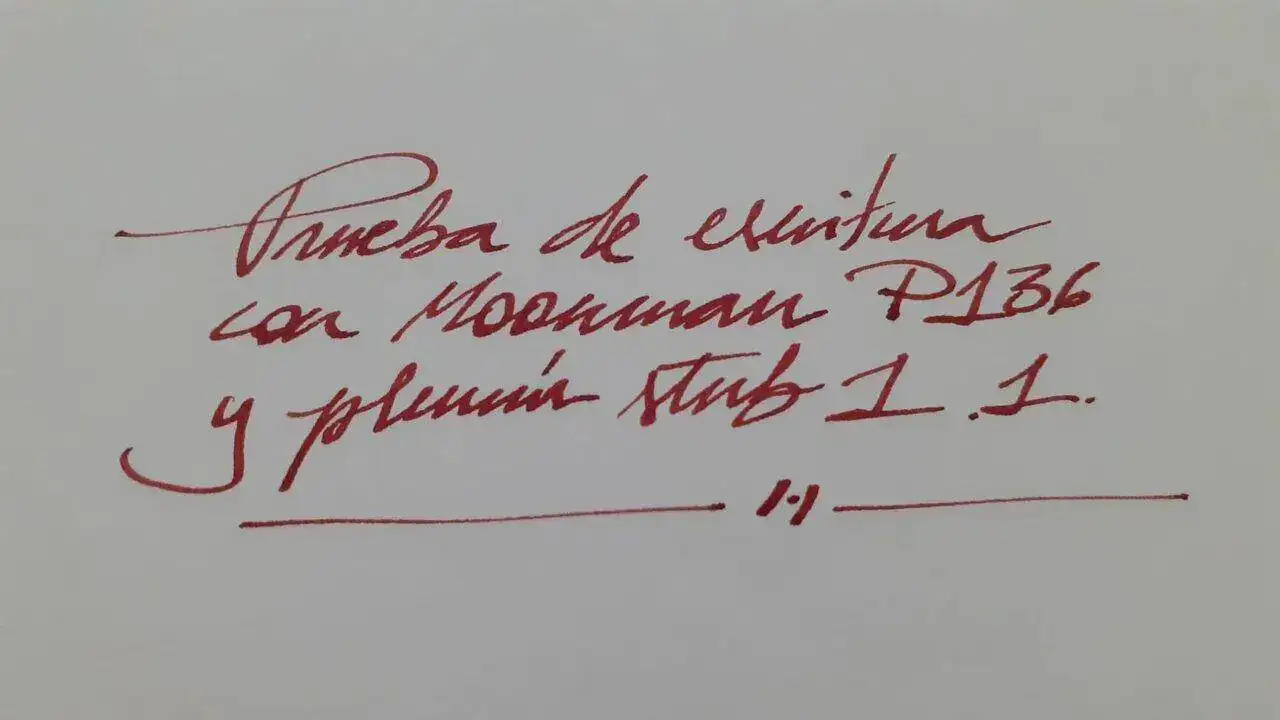 Prueba de escritura
con Moonman P136
y plumín stub 1.1.